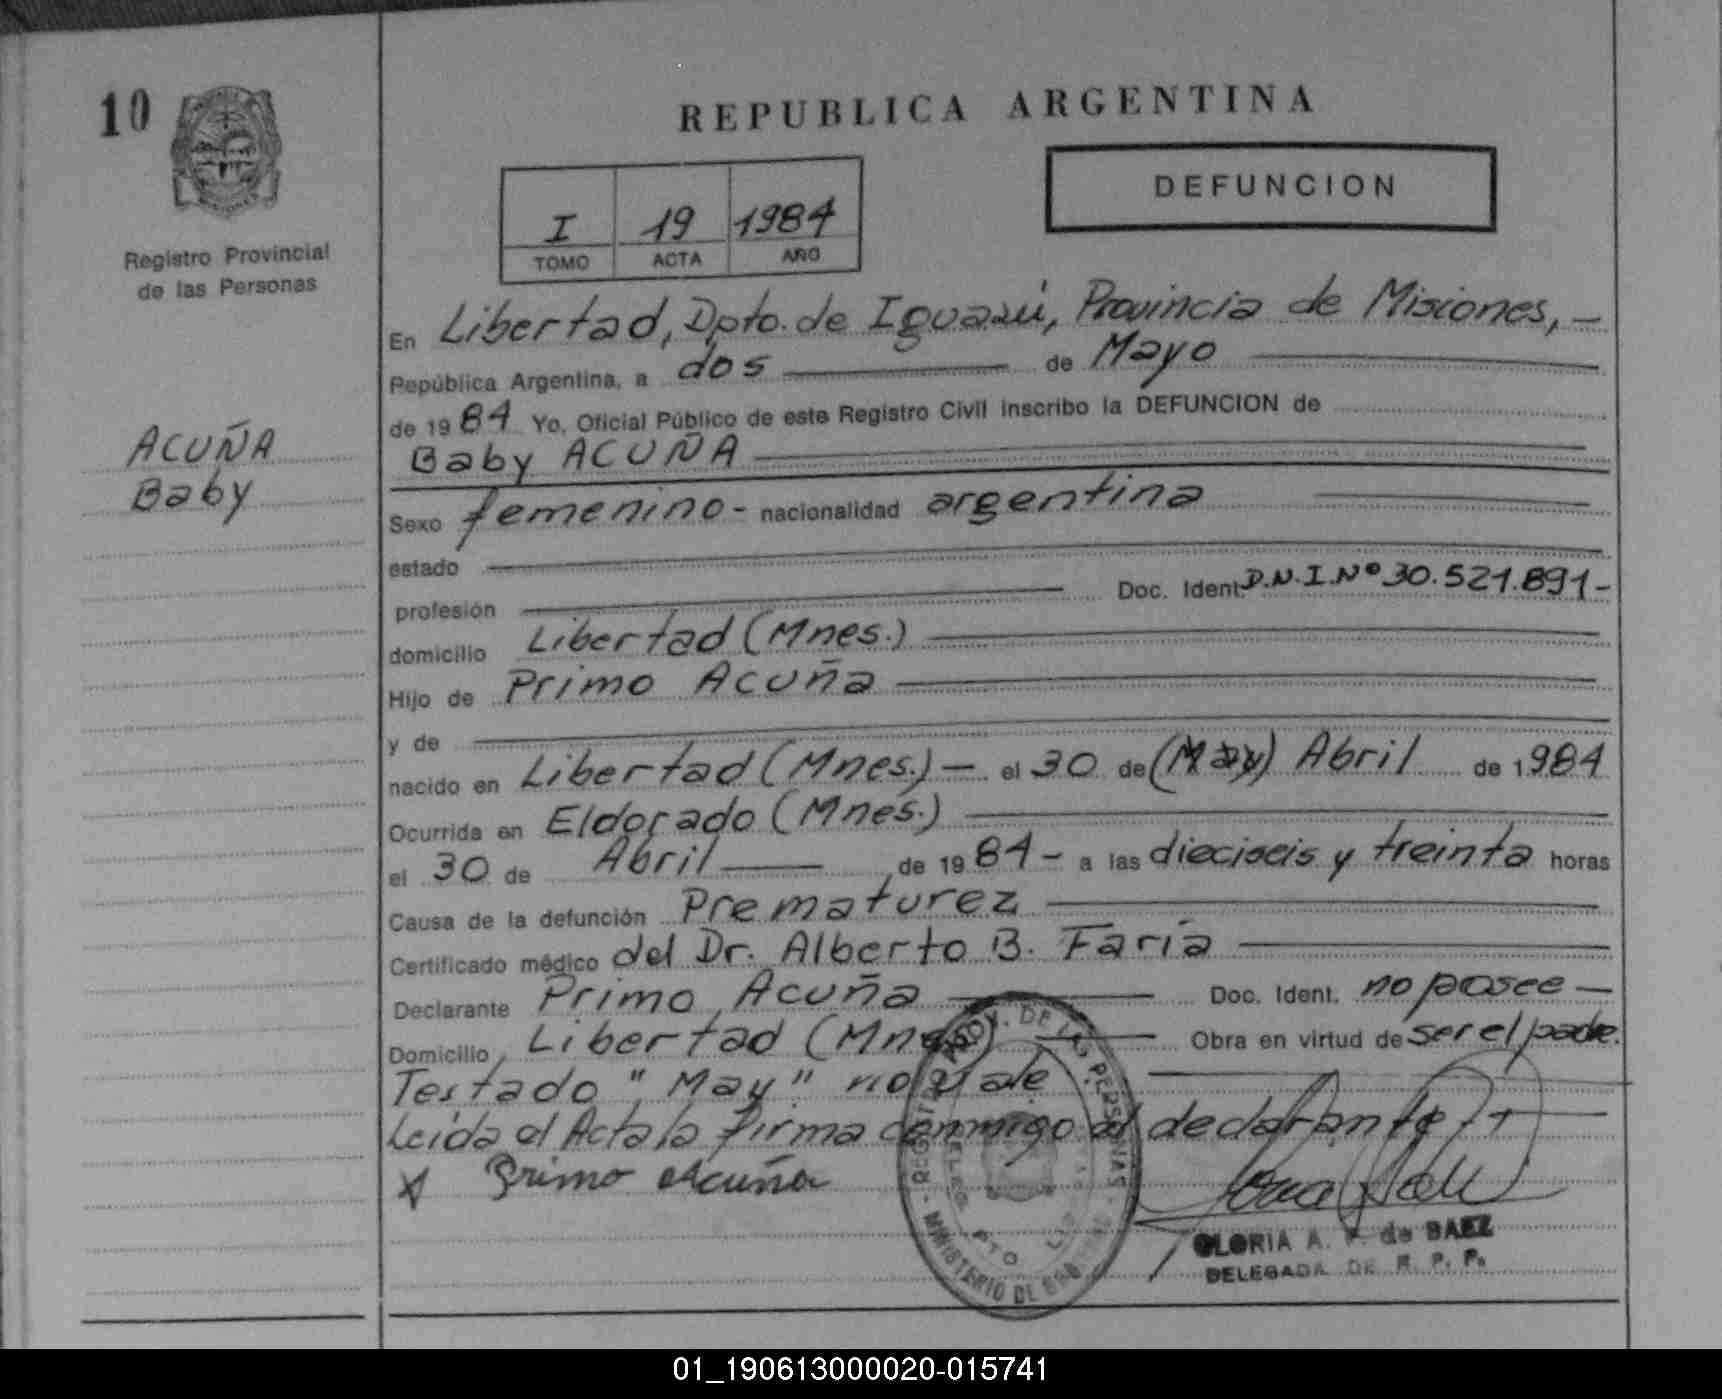 10
Registro Provincial
de las Personas
ACUÑA
Baby
REPUBLICA ARGENTINA
I 19 1984
TOMO ACTA AÑO
DEFUNCION
En Libertad, Dpto. de Iguazú, Provincia de Misiones,—
República Argentina, a dos de Mayo
de 1984 Yo, Oficial Público de este Registro Civil inscribo la DEFUNCION de
Baby ACUÑA
Sexo femenino - nacionalidad argentina
estado
profesión Doc. Ident. D.N.I.Nº 30.521.891-
domicilio Libertad (Mnes.)
Hijo de Primo Acuña
y de
nacido en Libertad (Mnes.) — el 30 de (May) Abril de 1984
Ocurrida en Eldorado (Mnes.)
el 30 de Abril de 1984 - a las dieciseis y treinta horas
Causa de la defunción Prematurez
Certificado médico del Dr. Alberto B. Faría
Declarante Primo Acuña Doc. Ident. no posee —
Domicilio Libertad (Mnes) Obra en virtud de ser el padre.
Testado "May" no vale
Leída el Acta la firma conmigo el declarante
Primo Acuña
GLORIA A. de BAEZ
DELEGADA DE R. P. P.
01_190613000020-015741